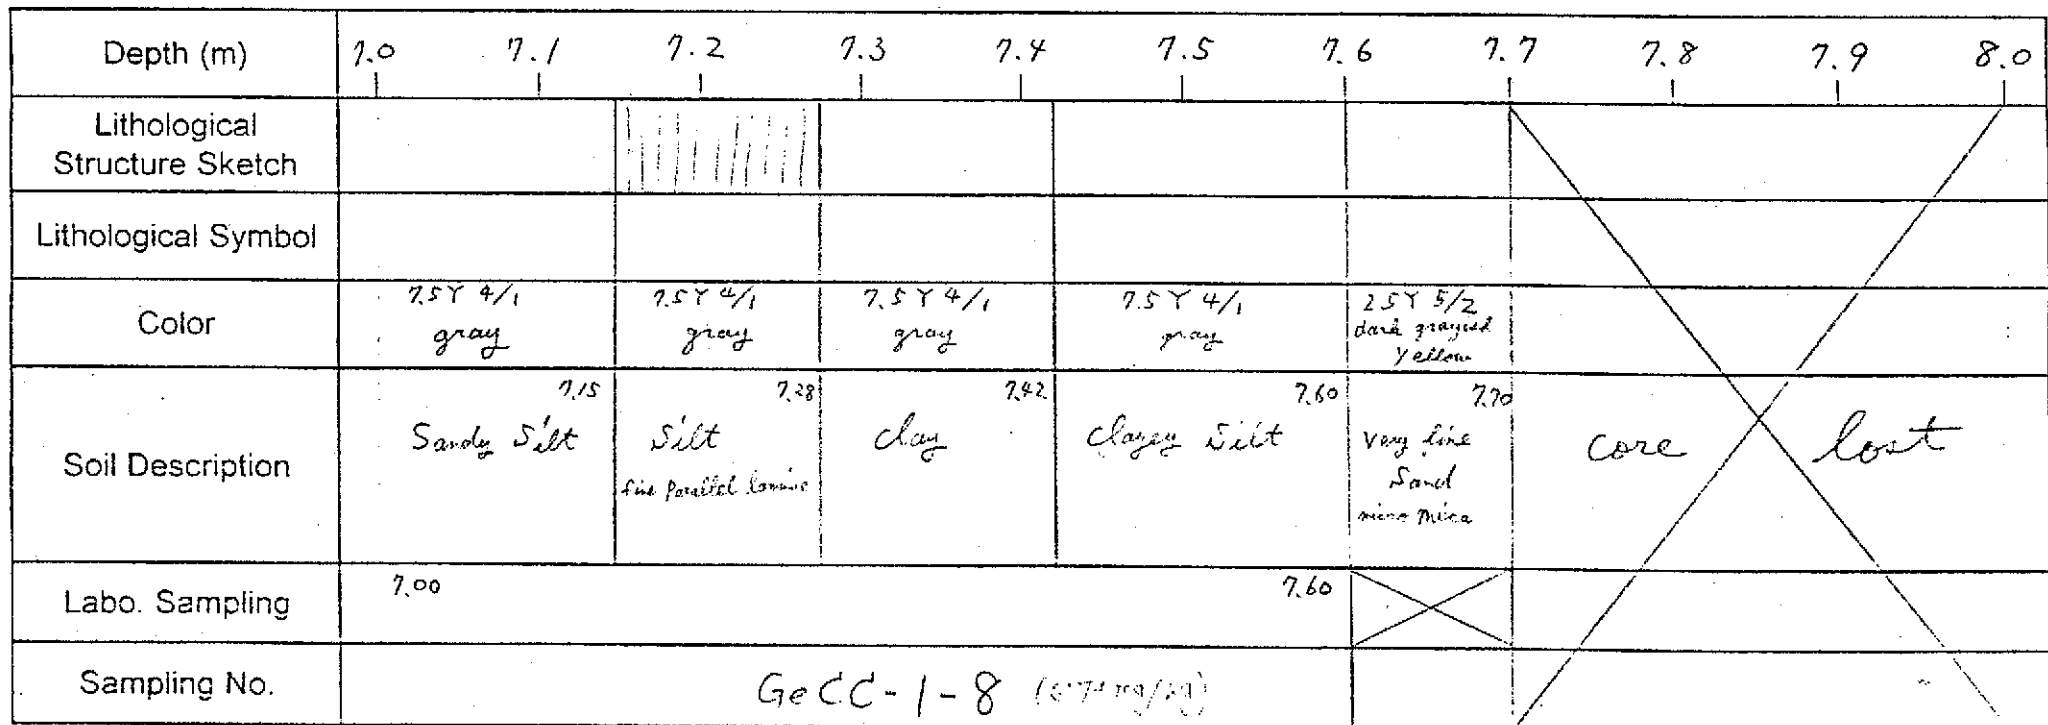 Depth (m) 7.0 7.1 7.2 7.3 7.4 7.5 7.6 7.7 7.8 7.9 8.0
Lithological
Structure Sketch
Lithological Symbol
Color
7.5Y 4/1
gray
7.5Y 4/1
gray
7.5Y 4/1
gray
7.5Y 4/1
gray
2.5Y 5/2
dark grayish
Yellow
Soil Description
7.15
Sandy Silt
7.28
Silt
fine Parallel lamina
7.42
clay
7.60
Clayey Silt
7.70
Very fine
Sand
micro mica
core lost
Labo. Sampling 7.00 7.60
Sampling No. GeCC-1-8